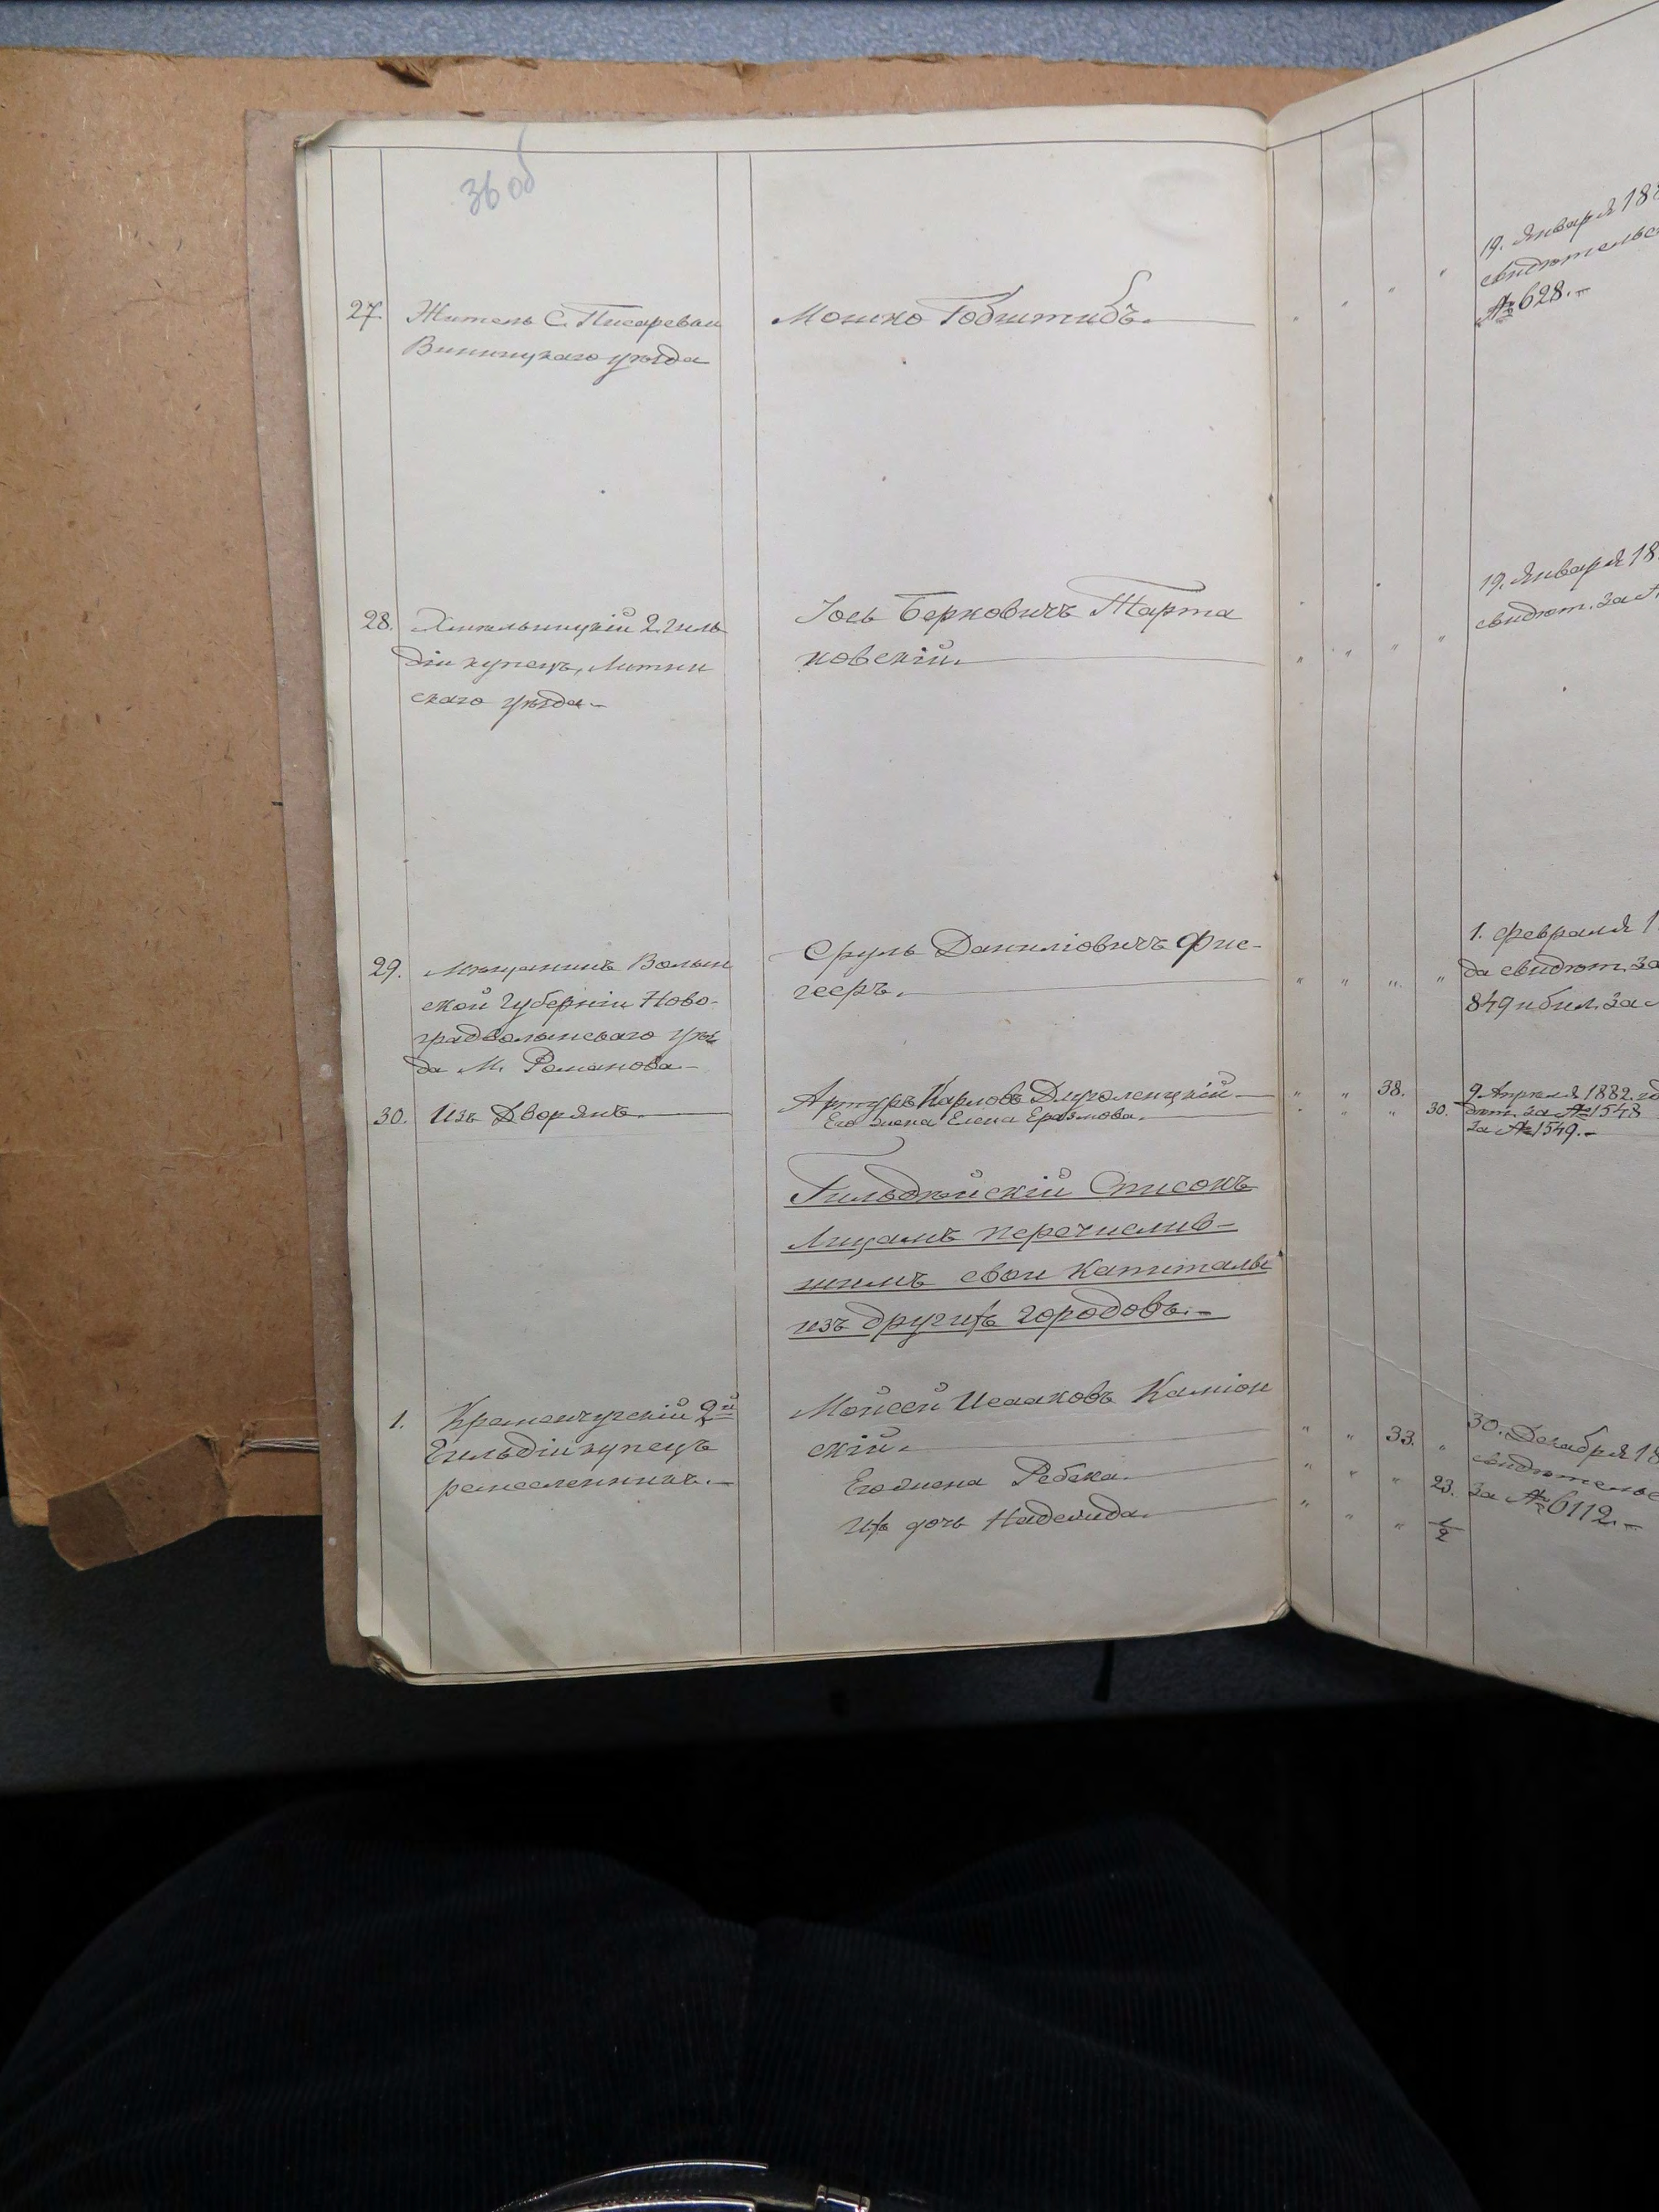 36 об
27. Житель С. Писаревки
Винницкаго уѣзда
Мошко Гобштибъ.
19. Января 188
свидѣтельс
№ 628.—
28. Хмельницкій 2. гиль
діи купецъ, Литин
скаго уѣзда.—
Іось Берковичъ Тарта
ковскій.
19. Января 18
свидѣт. за №
29. Мѣщанинъ Волын
ской Губерніи Ново-
градволынскаго уѣз
да М. Романова.—
Сруль Даниліовичъ Фис-
гееръ.
1. Февраля 1
да свидѣт. за
849 и бил. за
30. Изъ Дворянъ.
Артуръ Карловъ Длуголенцкій.
Его жена Елена Еразмова.
38.
30.
9 Апрѣля 1882. го
дѣт. за № 1548
за № 1549.—
Гильдѣйскій Списокъ
Лицамъ перечислив-
шимъ свои капиталы
изъ другихъ городовъ.—
1. Кременчугскій 2й
Гильдіи купецъ
ремесленникъ.—
Мойсей Исааковъ Каміон
скій.
Его жена Ребека.
Ихъ дочь Надежда.
33.
23.
1/2
30. Декабря 18
свидѣтельс
за № 6112.—